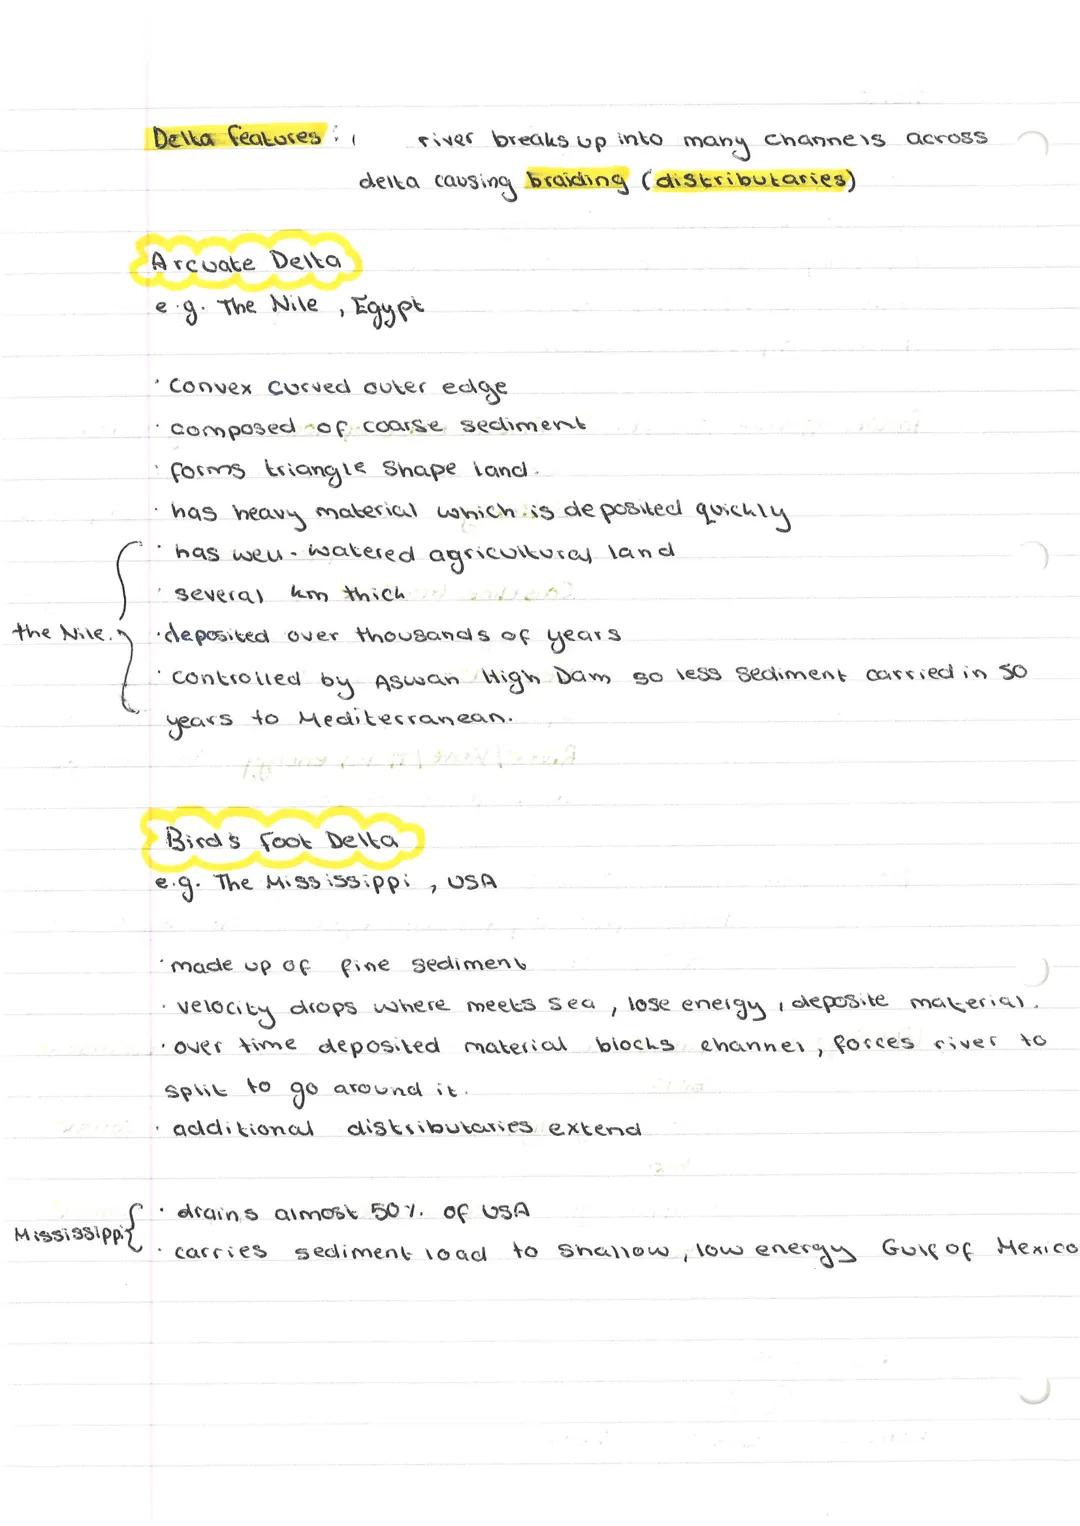 Delta features : river breaks up into many channels across
delta causing braiding (distributaries)
Arcuate Delta
e.g. The Nile, Egypt
· convex curved outer edge
· composed of coarse sediment
· forms triangle shape land.
· has heavy material which is deposited quickly
· has well-watered agricultural land
· several km thick
the Nile. · deposited over thousands of years
· controlled by Aswan High Dam so less sediment carried in 50
years to Mediterranean.
Bird's Foot Delta
e.g. The Mississippi, USA
· made up of fine sediment
· velocity drops where meets sea, lose energy, deposite material.
· over time deposited material blocks channel, forces river to
split to go around it.
· additional distributaries extend
· drains almost 50% of USA
Mississippi
· carries sediment load to shallow, low energy Gulf of Mexico